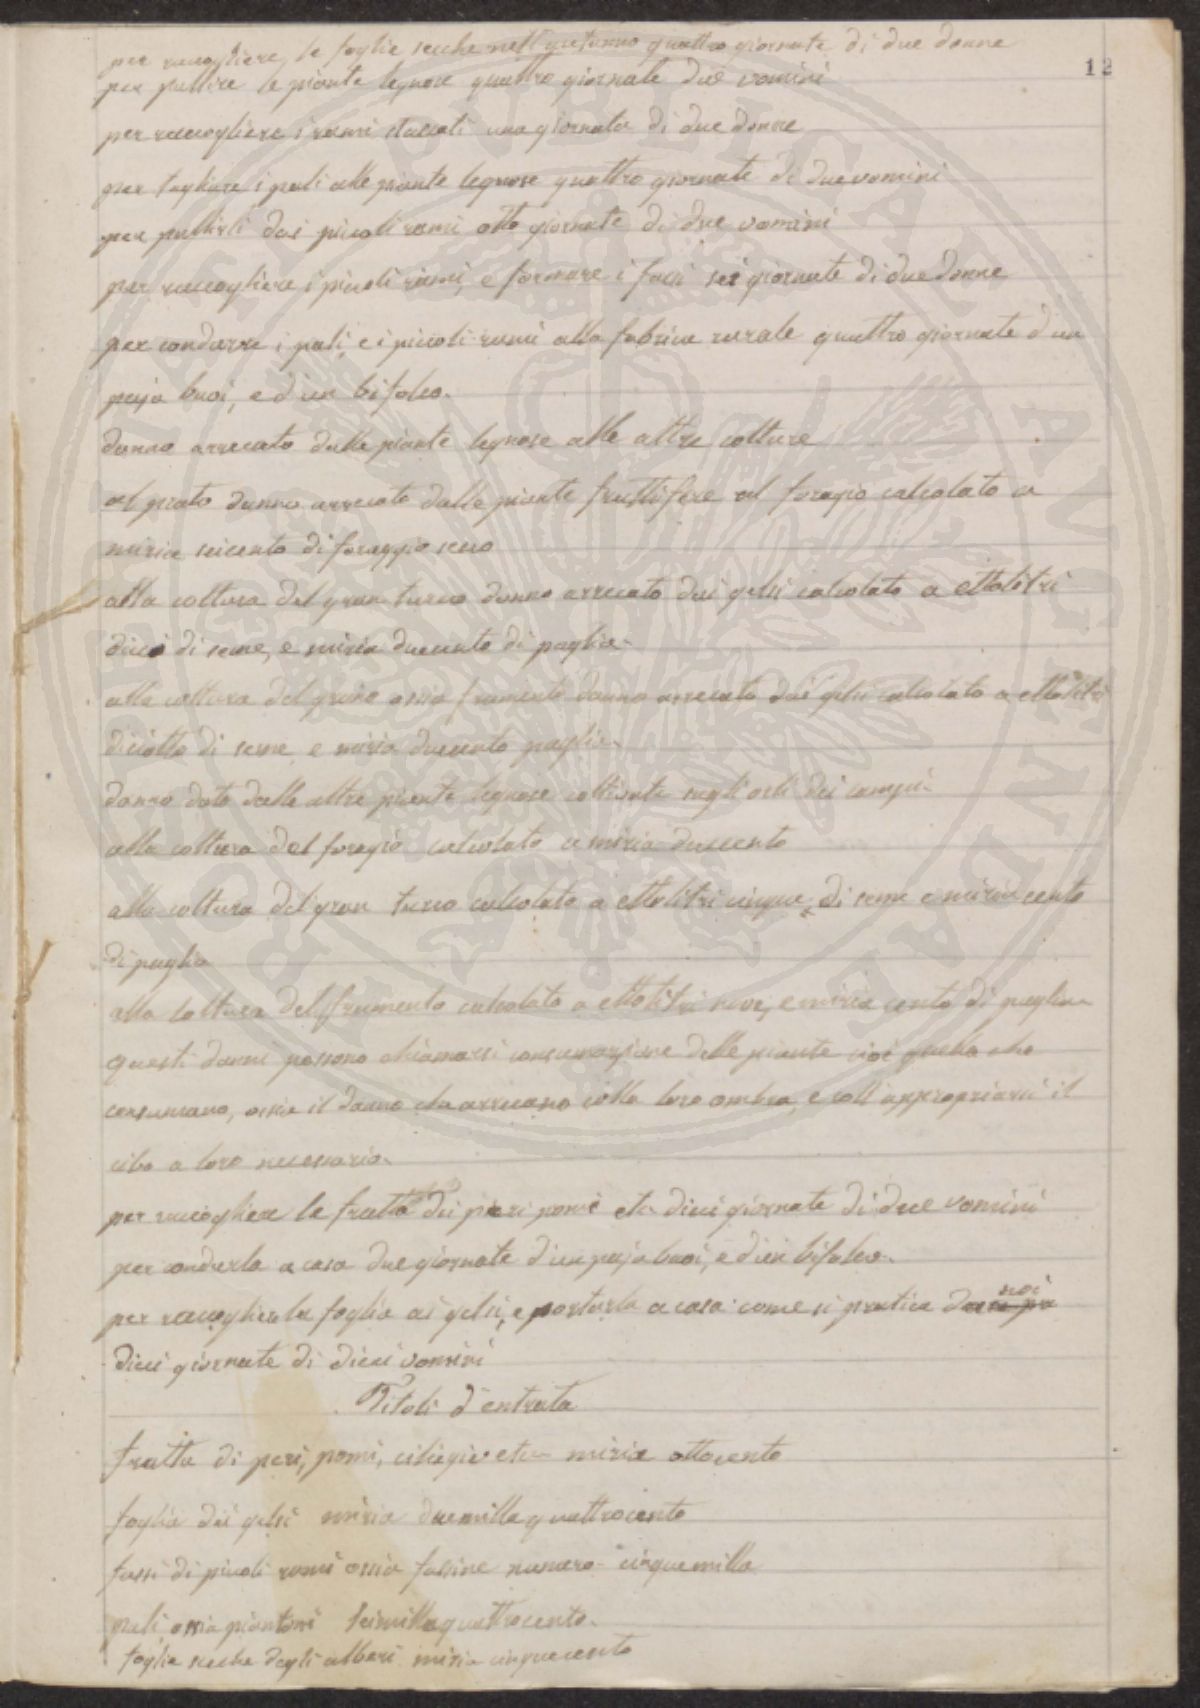 12
per raccogliere le foglie secche nell'autunno quattro giornate di due donne
per pullire le piante legnose quattro giornale due uomini
per raccogliere i rami staccati una giornata di due donne
per tagliare i pali alle piante legnose quattro giornate di due uomini
per pullirli dai piccoli rami otto giornate di due uomini
per raccogliere i piccoli rami, e formare i fassi sei giornate di due donne
per condurre i pali, e i piccoli rami alla fabrica rurale quattro giornate d'un
pajo buoi, e d'un bifolco.
danno arrecato dalle piante legnose alle altre colture
al prato danno arrecato dalle piante fruttifere al foragio calcolato a
miria seicento di foraggio secco
alla coltura del gran turco danno arrecato dai gelsi calcolato a ettolitri
dieci di seme, e miria duecento di paglia.
alla coltura del grano ossia frumento danno arrecato dai gelsi calcolato a ettolitri
diciotto di seme e miria duecento paglia.
danno dato dalle altre piante legnose coltivate sugli orli dei campi.
alla coltura del foragio calcolato a miria duecento
alla coltura del gran turco calcolato a ettolitri cinque di seme e miria cento
di paglia
alla coltura del frumento calcolato a ettolitri nove, e miria cento di paglia
questi danni possono chiamarsi consumazione delle piante cioè quella che
consumano, ossia il danno che arrecano colla loro ombra, e coll'appropriarsi il
cibo a loro necessario.
per raccogliere le frutta dei peri pomi etc dieci giornate di due uomini
per condurla a casa due giornate d'un pajo buoi, e d'un bifolco.
per raccogliere la foglia ai gelsi, e portarla a casa come si pratica da noi
dieci giornate di dieci uomini
Titoli d'entrata
frutta di peri, pomi, ciliegie etc miria ottocento
foglia dei gelsi miria duemilla quattrocento
fassi di piccoli rami ossia fassine numero cinquemilla
pali, ossia piantoni seimillaquattrocento.
foglie secche degli alberi miria cinquecento